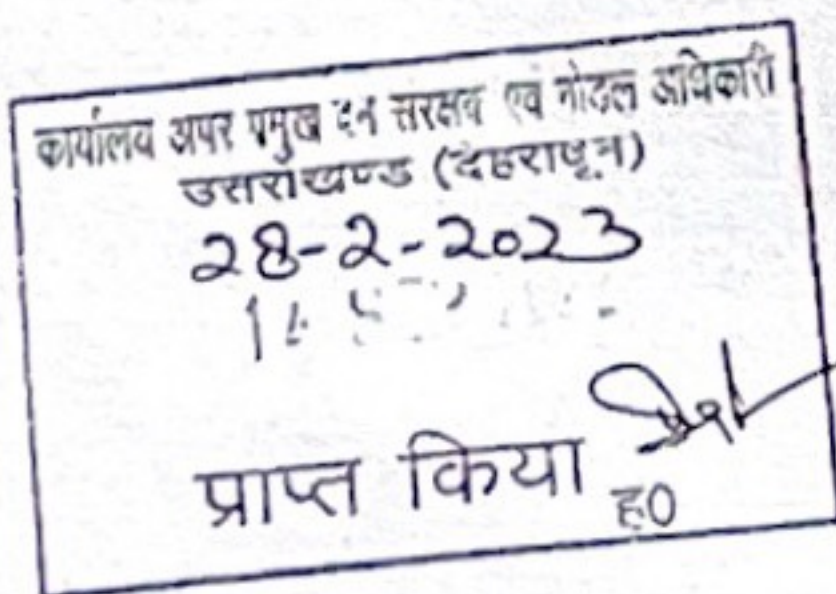 कार्यालय अपर प्रमुख वन संरक्षक एवं नोडल अधिकारी
उत्तराखण्ड (देहरादून)
28-2-2023
प्राप्त किया
ह0